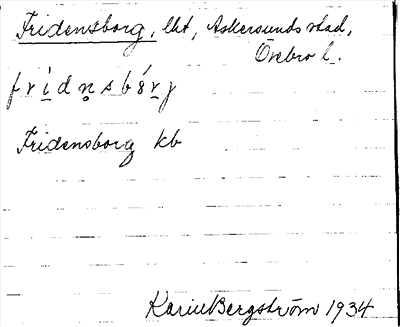 Fridensborg, lht, Askersunds stad,
Örebro l.
frídn̥sbórj
Fridensborg kb
Karin Bergström 1934